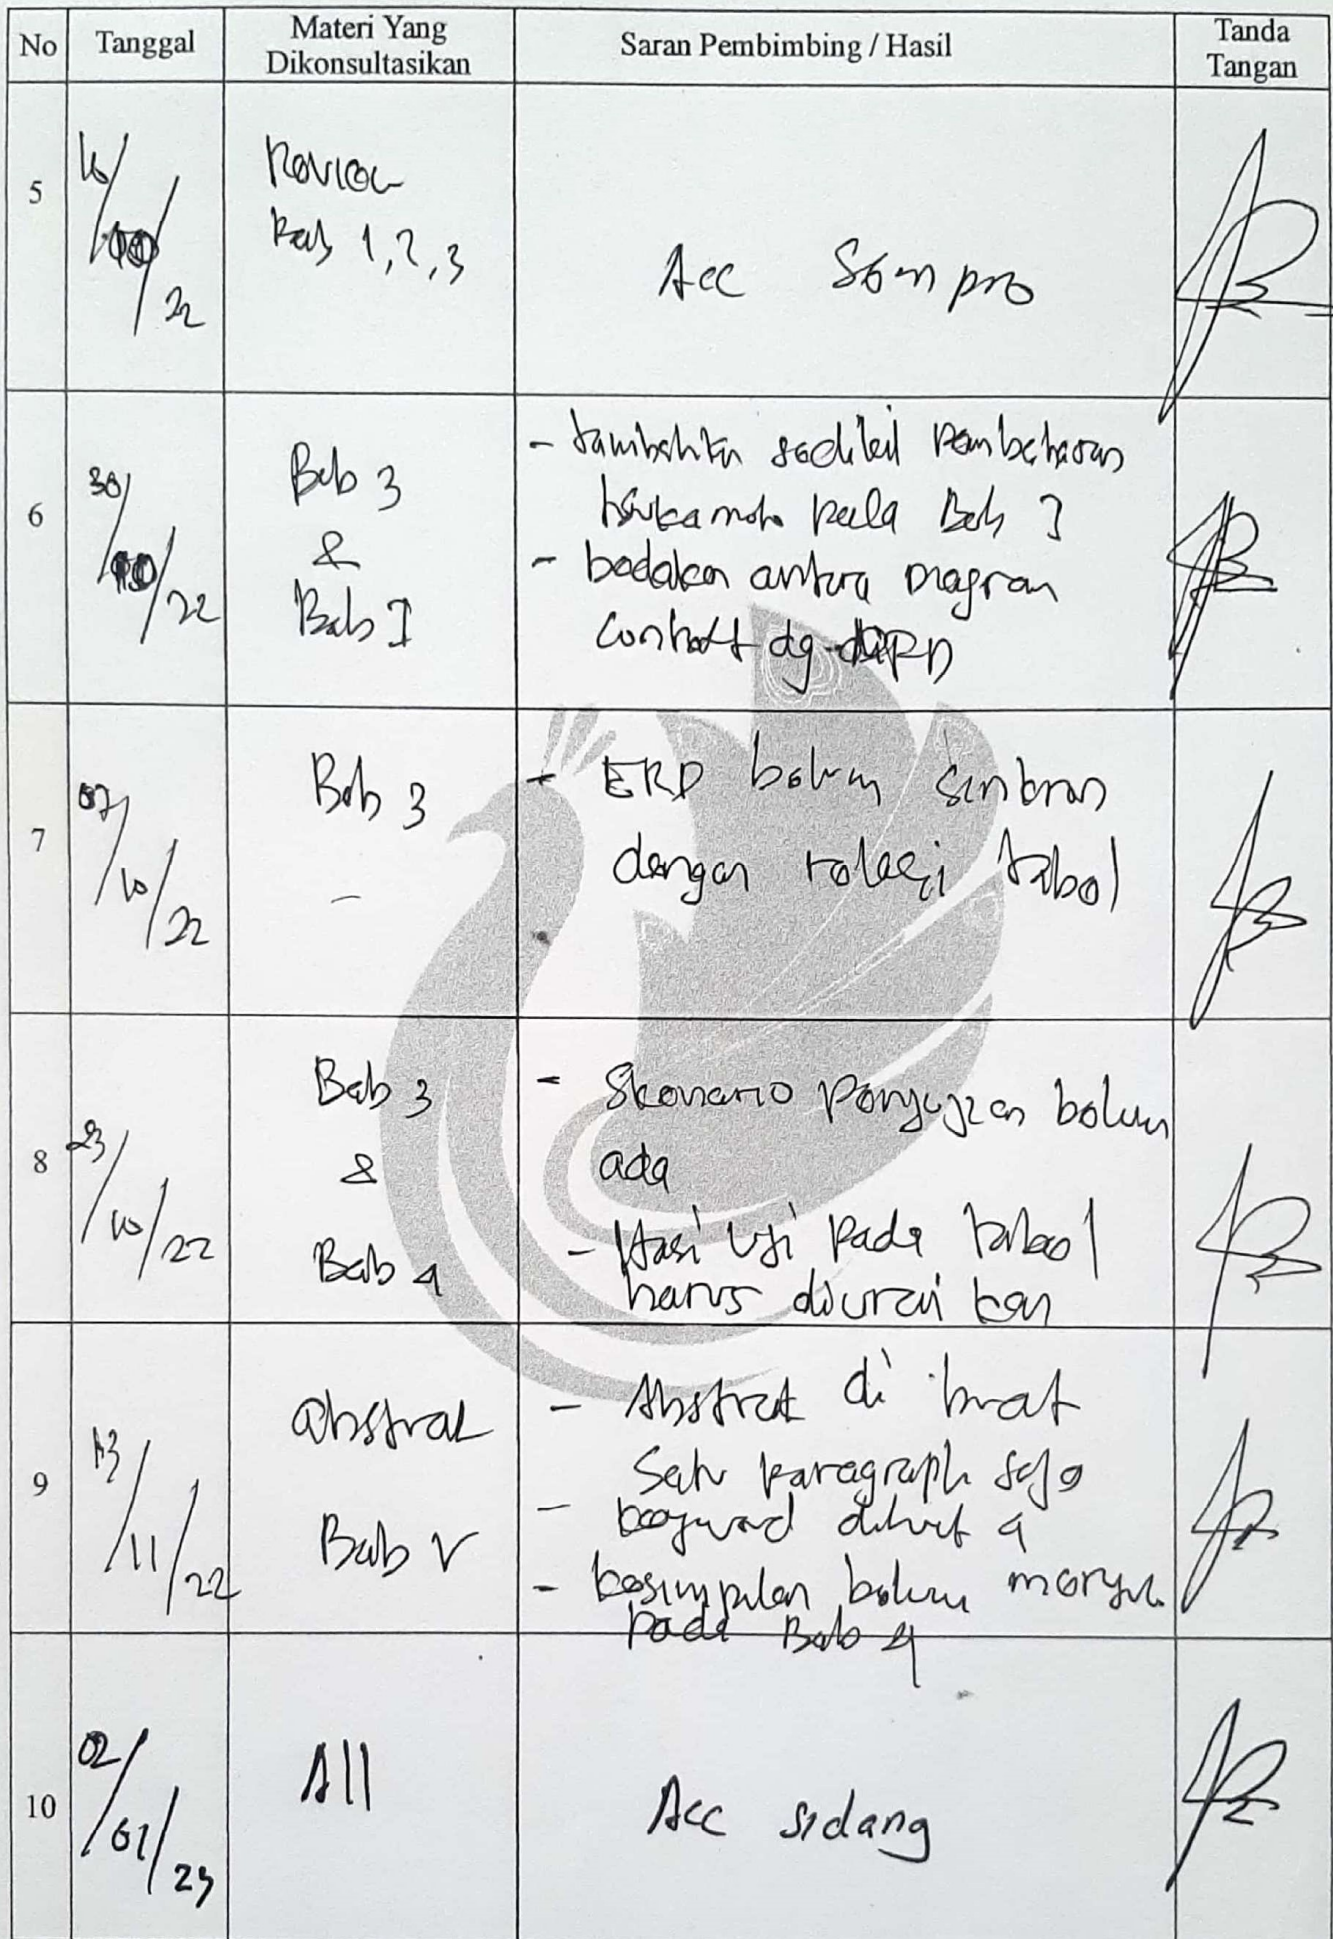 No Tanggal Materi Yang Dikonsultasikan Saran Pembimbing / Hasil Tanda Tangan
5
/22
Review
Bab 1,2,3
Acc Sempro
6
30/
/22
Bab 3
&
Bab I
- tambahkan sedikit Pembahasan
pada Bab I
- bedakan antara Diagram
dg ERD
7
07/10/22
Bab 3
-
- ERD belum sinkron
dengan relasi tabel
8
23/10/22
Bab 3
&
Bab 4
- Skenario Pengujian belum
ada
- Hasi Uji Pada tabel
harus diuraikan
9
13/11/22
Abstrak
Bab V
- Abstrak di buat
Satu paragraph saja
- keyword 4
- kesimpulan belum
pada Bab 4
10
02/01/23
All
Acc sidang